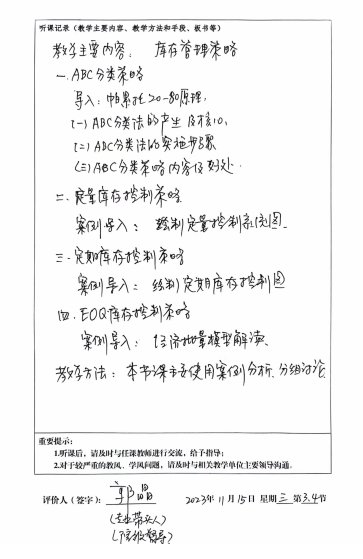 听课记录（教学主要内容、教学方法和手段、板书等）
教学主要内容： 库存管理策略
一.ABC分类策略
导入：帕累托20-80原理.
(一) ABC分类法的产生及核心.
(二) ABC分类法的实施步骤
(三) ABC分类策略内容及好处.
二.定量库存控制策略
案例导入： 绘制定量控制系统图.
三.定期库存控制策略
案例导入： 绘制定期库存控制图
四.EOQ库存控制策略
案例导入： 经济批量模型解读.
教学方法：本节课主要使用案例分析.分组讨论.
重要提示：
1.听课后，请及时与任课教师进行交流，给予指导；
2.对于较严重的教风、学风问题，请及时与相关教学单位主要领导沟通。
评价人（签字）： 2023年11月15日 星期三 第3.4节
(专业带头人)